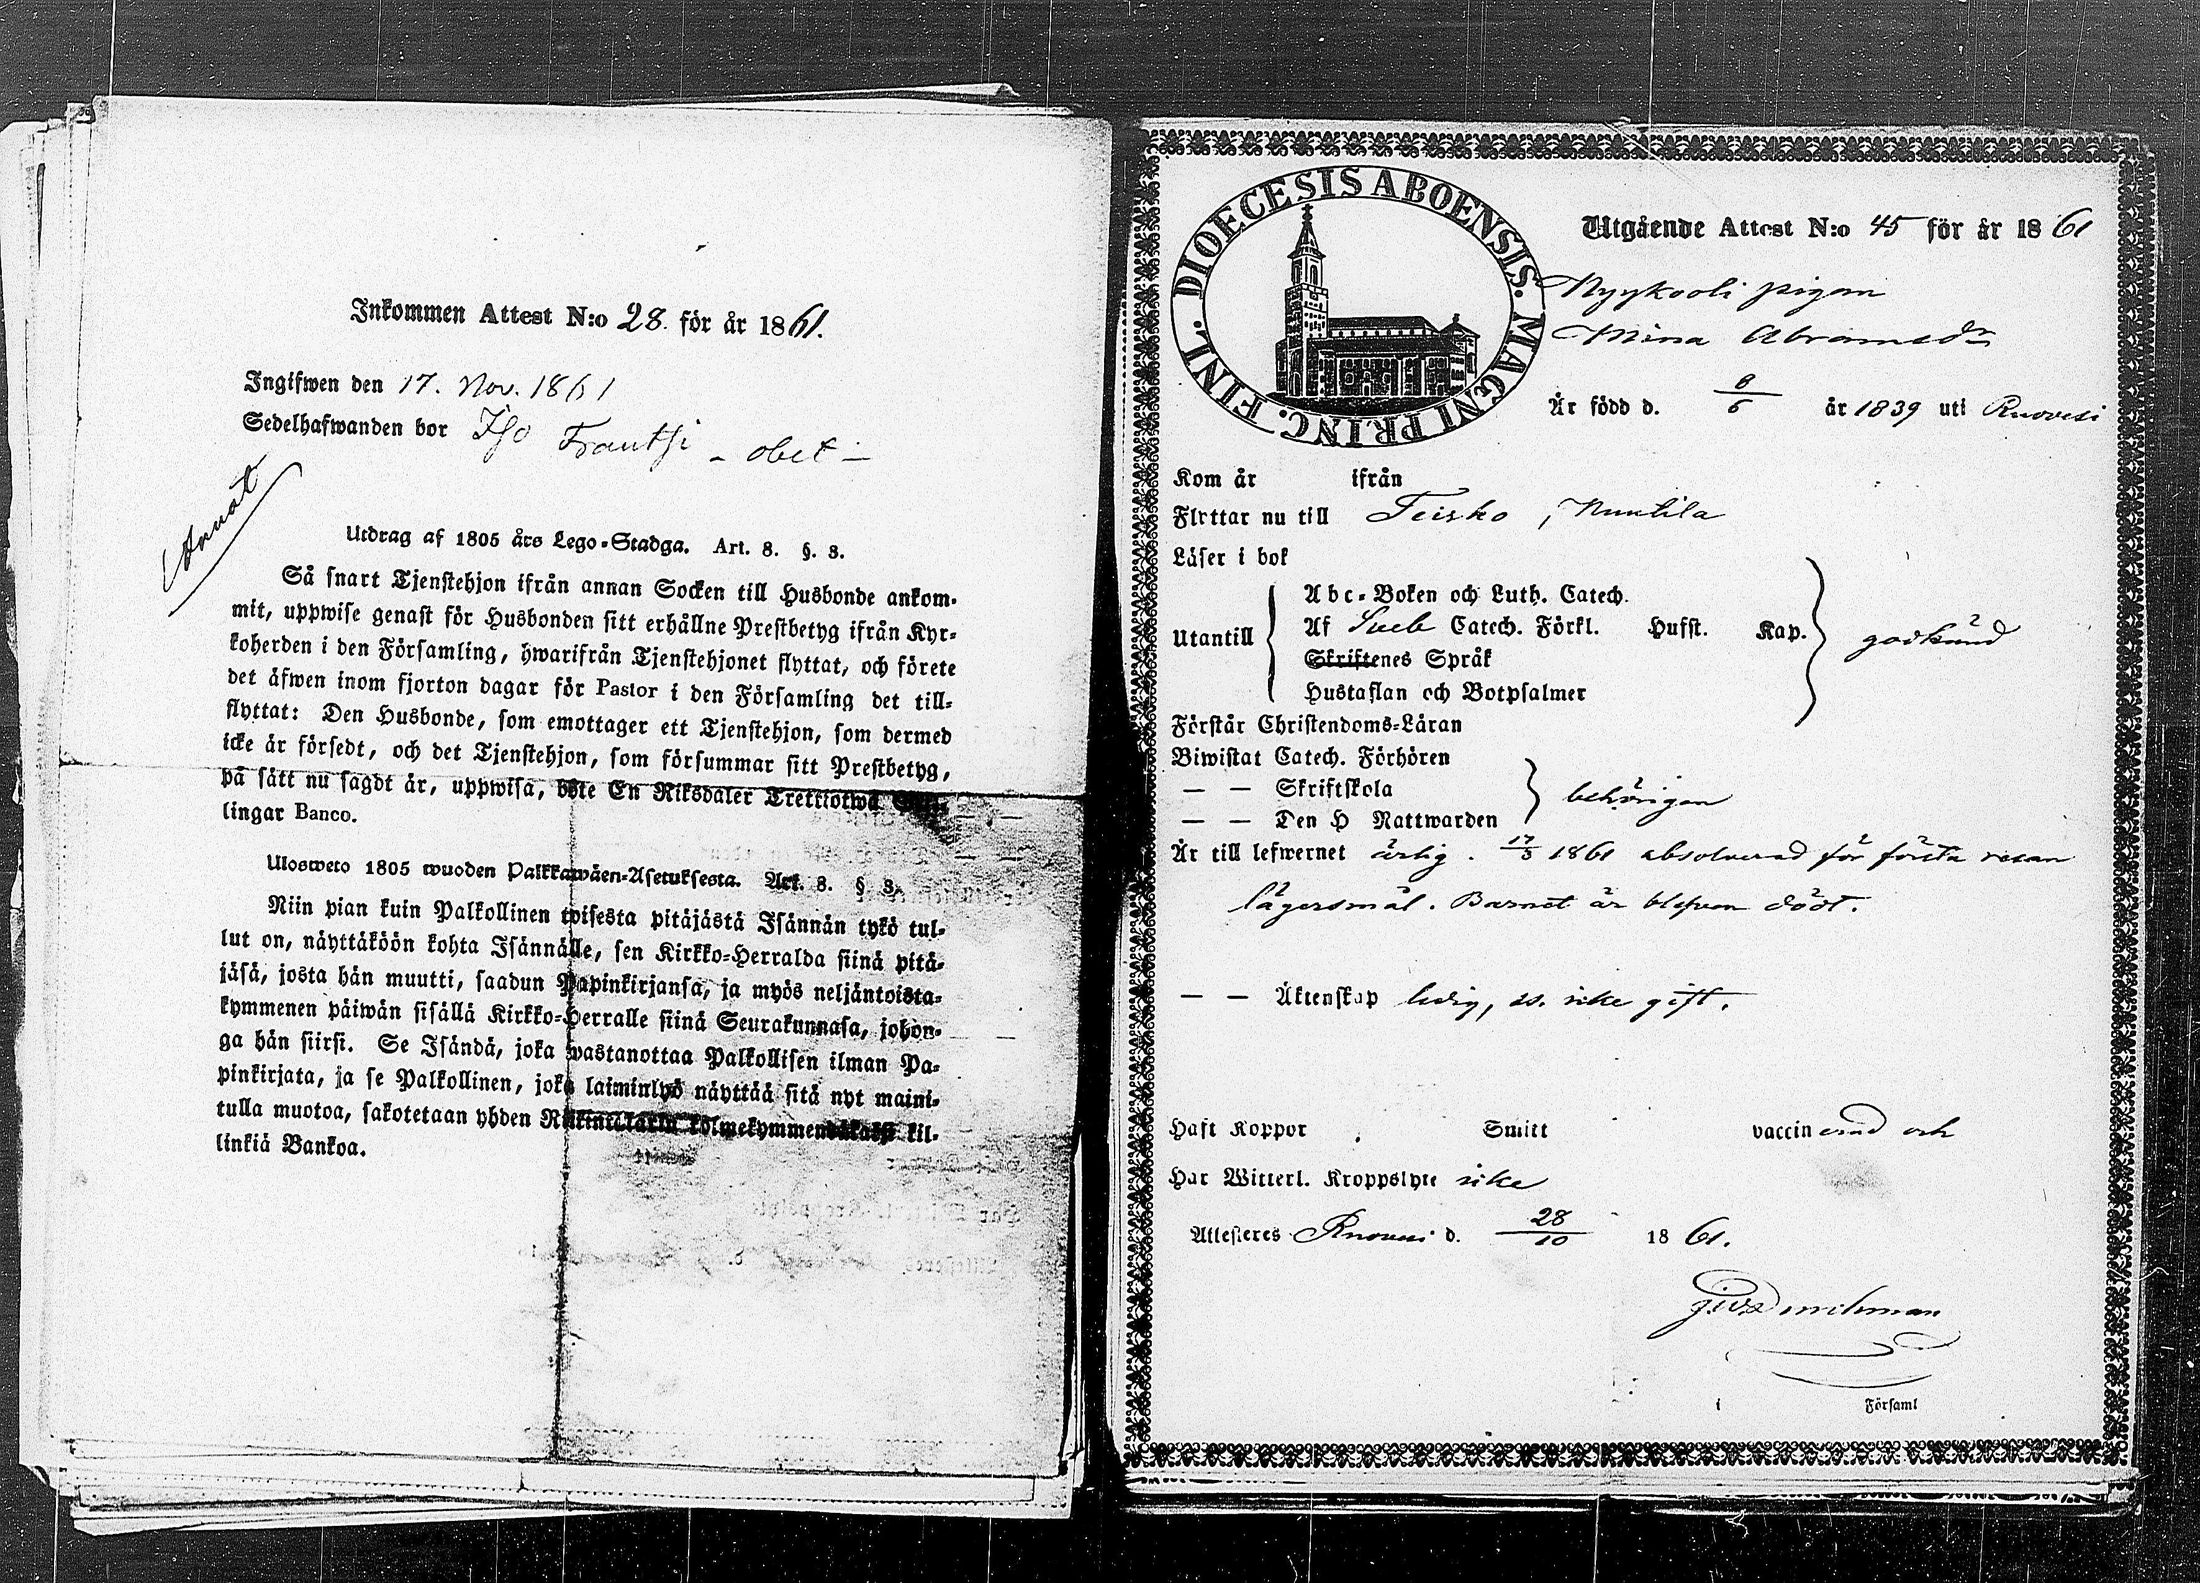 Inkommen Attest N:o 28. för år 1861.
Ingifwen den 17. Nov. 1861
Sedelhafwanden bor Iso Frantsi - obet -
Annat
Utdrag af 1805 års Lego-Stadga. Art. 8. §. 3.
Så snart Tjenstehjon ifrån annan Socken till Husbonde ankom-
mit, uppwise genast för Husbonden sitt erhållne Prestbetyg ifrån Kyr-
koherden i den Församling, hwarifrån Tjenstehjonet flyttat, och förete
det äfwen inom fjorton dagar för Pastor i den Församling det till-
flyttat: Den Husbonde, som emottager ett Tjenstehjon, som dermed
icke är försedt, och det Tjenstehjon, som försummar sitt Prestbetyg,
på sätt nu sagdt är, uppwisa, böte En Riksdaler Trettiotwå Skil-
lingar Banco.
Ulosweto 1805 wuoden Palkkawäen-Asetuksesta. Art. 8. § 3.
Niin pian kuin Palkollinen toisesta pitäjästä Isännän tykö tul-
lut on, näyttäköön kohta Isännälle, sen Kirkko-Herralda siinä pitä-
jäsä, josta hän muutti, saadun Papinkirjansa, ja myös neljäntoista-
kymmenen päiwän sisällä Kirkko-Herralle siinä Seurakunnasa, johon-
ga hän siirsi. Se Isändä, joka wastanottaa Palkollisen ilman Pa-
pinkirjata, ja se Palkollinen, joka laiminlyö näyttää sitä nyt maini-
tulla muotoa, sakotetaan yhden Riikintalarin kolmekymmendäkaksi kil-
linkiä Bankoa.
DIOECESIS ABOENSIS. MAGNI PRINC. FINL.
Utgående Attest N:o 45 för år 1861
Nyykooli pigan
Mina Abramsdr
Är född d. 8/6 år 1839 uti Ruovesi
Kom år ifrån
Flyttar nu till Teisko, Nuutila
Läser i bok
Abc-Boken och Luth. Catech.
Utantill Af Sveb Catech. Förkl. Husst. Kap. godkänd
Skriftenes Språk
Hustaflan och Botpsalmer
Förstår Christendoms-Läran
Biwistat Catech. Förhören
— — Skriftskola behörigen
— — Den H Nattwarden
Är till lefwernet ärlig. 17/3 1861 absolverad för första resan
lägersmål. Barnet är blefven dödt.
— — Äktenskap ledig, ss. icke gift.
Haft Koppor Smitt vaccinerad och
Har Witterl. Kroppslyte icke
Attesteres Ruovesi d. 28/10 1861.
i Församl